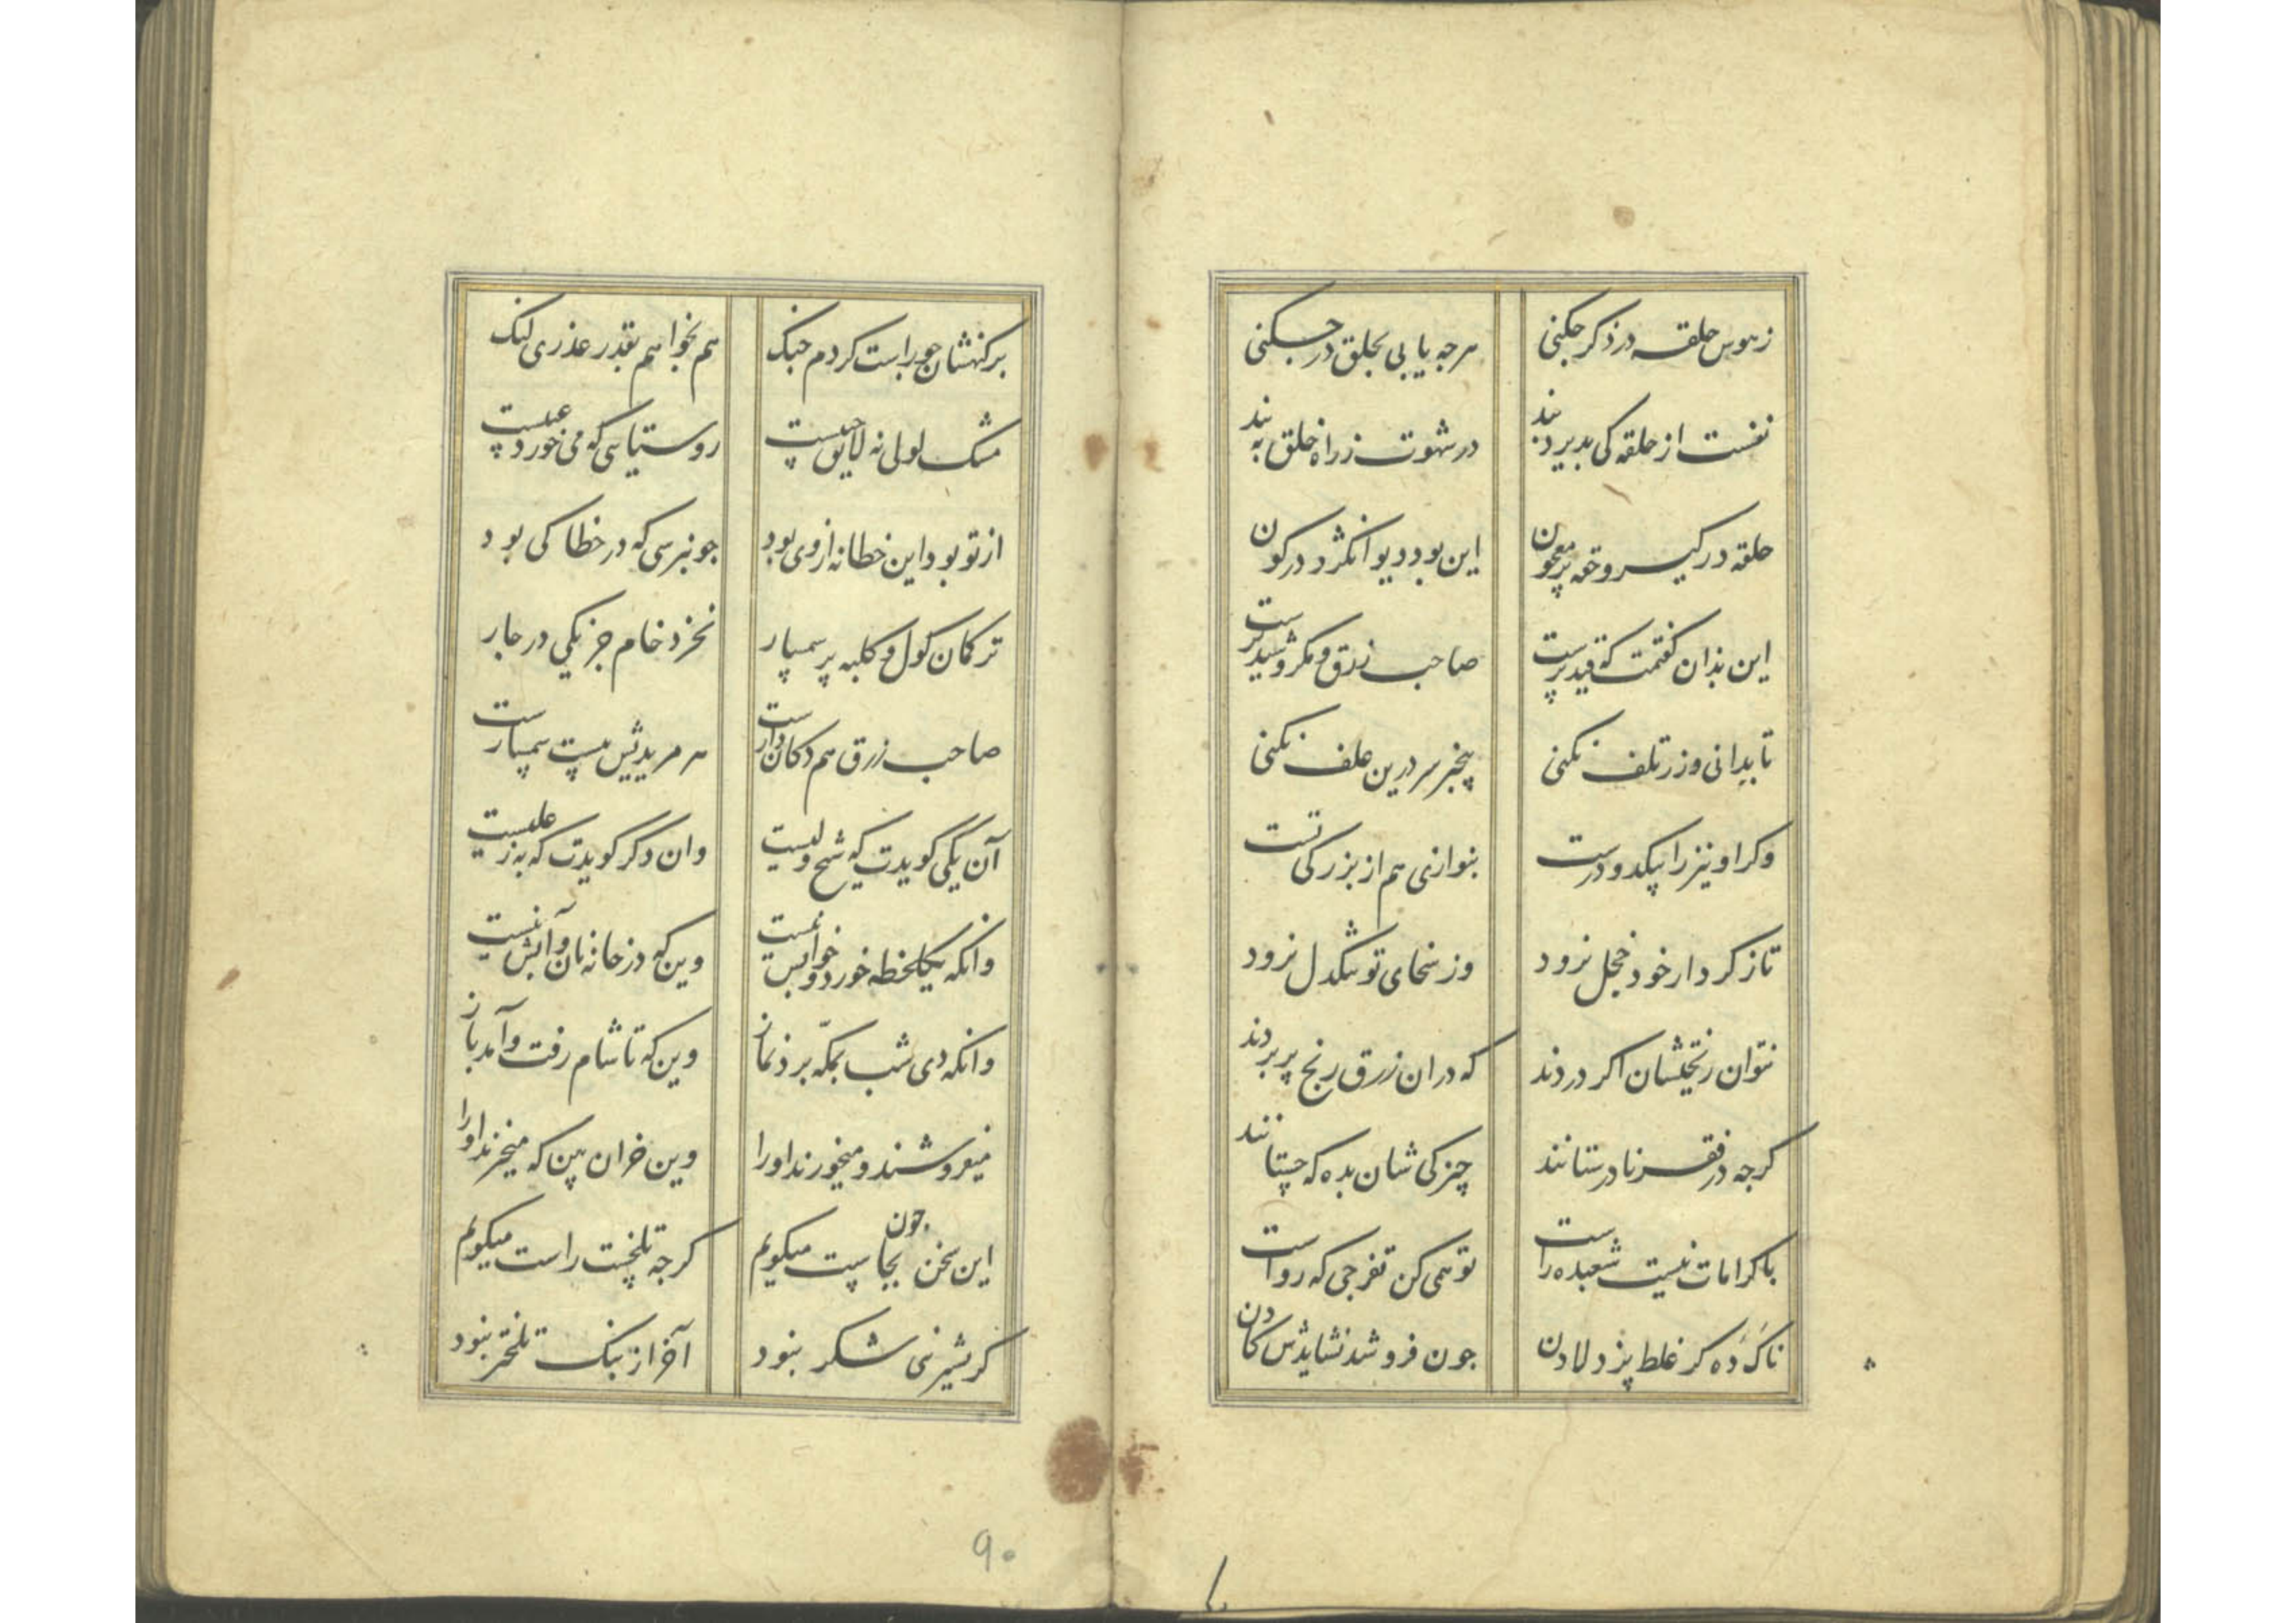 ز هوس حلقه در ذکر چکنی هرچه یابی بحلق در چکنی
نفست از حلقه کی پذیرد بند در شهوت ز راه خلق به بند
حلقه در کیسر و حقه پر معجون این بود دیو انگژد در کون
این بذان گفتمت که قید پرست صاحب زرق و مکر و شید گرست
تا بدانی و زر تلف نکنی بیخبر سر درین علف نکنی
وکر او نیز را پیکدو درست بنوازنی هم از بزرکی تست
تا ز کردار خود خجل نرود وز سخای تو تنکدل نرود
نتوان رنجیشان اکر دردند که دران زرق رنج پر بردند
کرجه در فقر نادرستانند چیزکی شان بده که چستانند
با کرامات نیست شعبده راست تو همی کن تفرجی که رواست
ناک ده کر غلط پزد لادن جون فروشد نشایدش کادن
بر کنهشان جو راست کردم جنک هم بخواهم بقدر عذری لنک
مشک لولی نه لایق جیست روستیایی که می خورد عیبست
از تو بود این خطا نه از وی بود جو نپرسی که در خطا کی بود
ترکمان کول و کلبه پر سمپار نخرد خام جز یکی در جار
صاحب زرق هم دکان دارست هر مریدیش بیست سمپارست
آن یکی کویدت که شیخ ولیست وان دکر کویدت که به ز علیست
وانکه یکلحظه خورد و خوابش نیست وین که در خانه نان و آبش نیست
وانکه دی شب بمکه برد نماز وین که تا شام رفت و آمد باز
میفروشند و میخورند او را وین خران بین که میخرند او را
این سخن جون بجاست میکویم کرجه تلخست راست میکویم
کر بشیرنی شکر نبود آخر از بنک تلختر نبود
۹۰